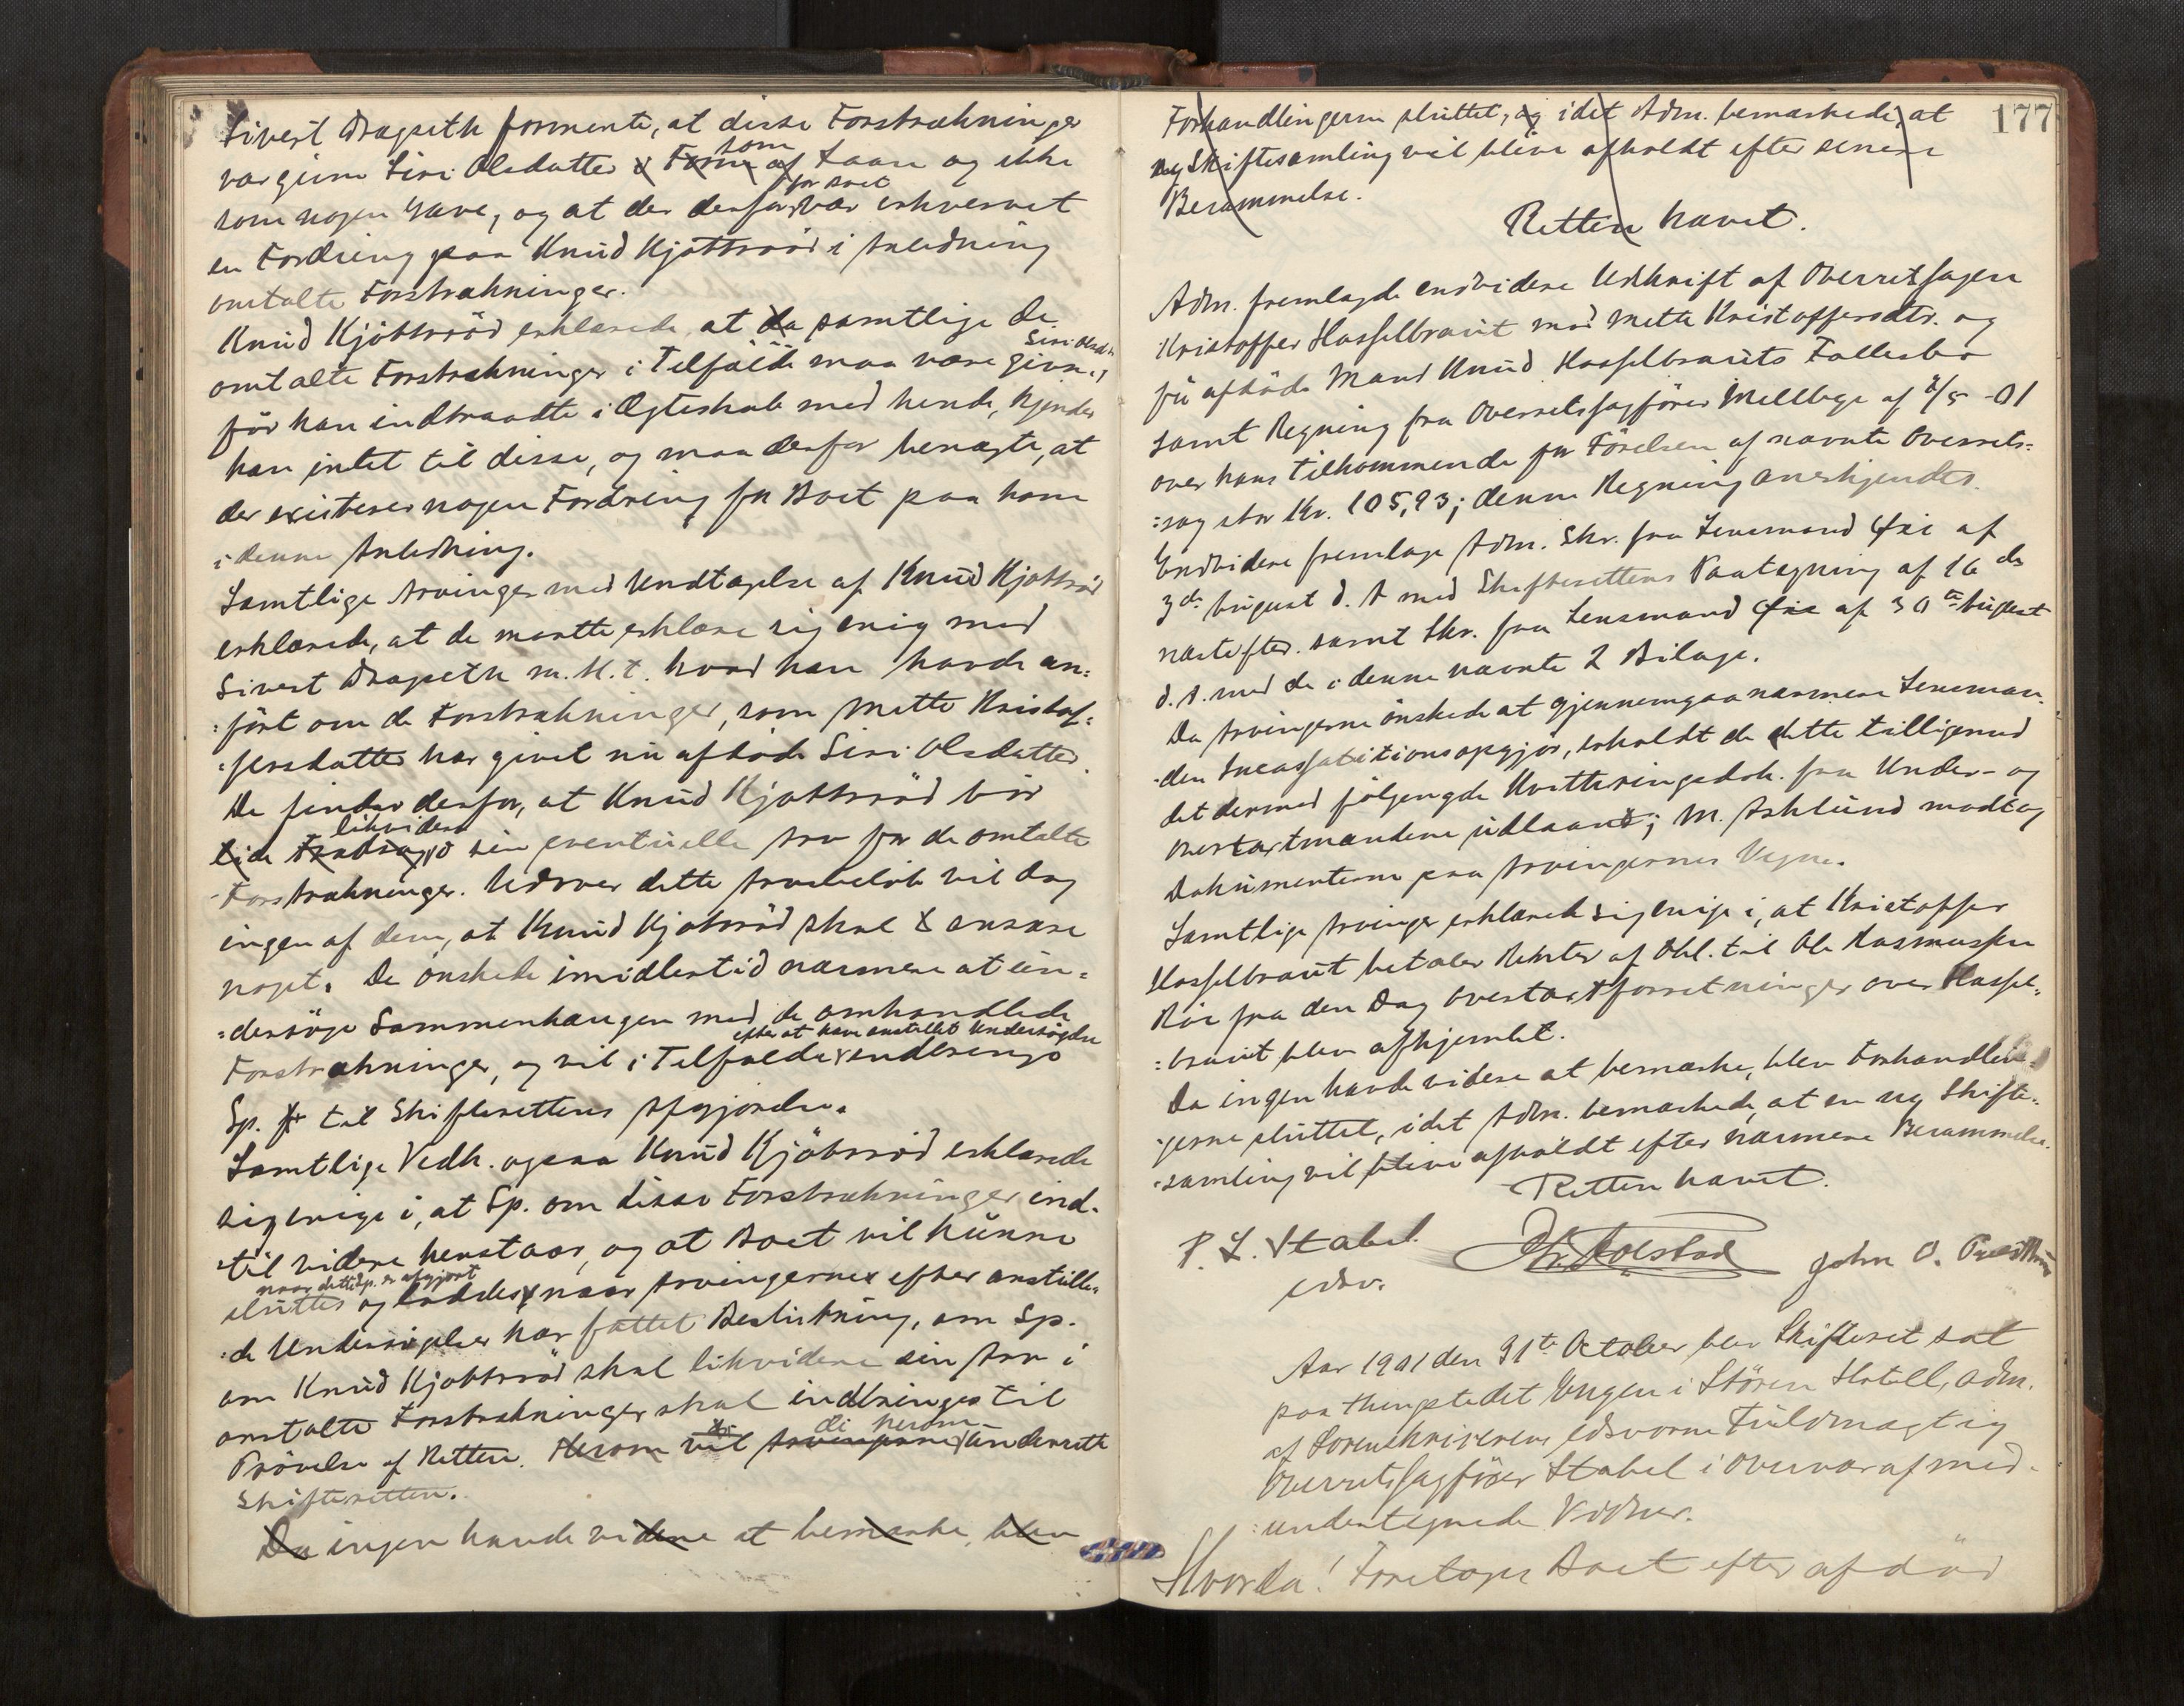 Sivert Drapseth formente, at disse Forstrækninger
var givne Siri Olsdatter i Form af som Laan og ikke
som nogen Gave, og at der derfor for Boet var erhvervet
en Fordring paa Knud Kjøttsrød i Anledning
omtalte Forstrækninger.
Knud Kjøttsrød erklærede at da samtlige de
omtalte Forstrækninger i Tilfælde maa være givne Siri Olsdtr,
før han indtraadte i Ægteskab med hende, kjender
han intet til disse, og maa derfor benægte, at
der existerer nogen Fordring for Boet paa ham
i denne Anledning.
Samtlige Arvinger med Undtagelse af Knud Kjøttsrød
erklærede, at de maatte erklære sig enig med
Sivert Drapseth m. H. t. hvad han havde an:
:ført om de Forstrækninger, som Mette Kristof:
:fersdatter har givet nu afdøde Siri Olsdatter.
De finder derfor, at Knud Kjøttsrød bør
likvidere sin eventuelle Arv for de omtalte
Forstrækninger. Udover dette Arvebeløb vil dog
ingen af dem, at Knud Kjøttsrød skal & ansvare
noget. De ønskede imidlertid nærmere at un:
:dersøge Sammenhængen med de omhandlede
Forstrækninger, og vil i Tilfælde efter at have anstillet Undersøgelse indbringe
Sp. for til Skifterettens Afgjørelse.
Samtlige Vedk. ogsaa Knud Kjøttsrød erklærede
sig enige i, at Sp. om disse Forstrækninger ind-
:til videre henstaar, og at Boet vil kunne
sluttes naar dette Sp. er afgjort og loddes, naar Arvingerne efter anstille:
:de Undersøgelser har fattet Beslutning, om Sp.
om Knud Kjøttsrød skal likvidere sin Arv i
omtalte Forstrækninger skal indbringes til
Prøvelse af Retten. Herom vil Arvingerne de herom underrette
Skifteretten.
Da ingen havde videre at bemærke, blev
177
Forhandlingerne sluttet, og idet Adm. bemærkede, at
ny Skiftesamling vil blive afholdt efter senere
Berammelse.
Retten hævet.
Adm. fremlagde endvidere Udskrift af Overretssagen
Kristoffer Hasselbraut mod Mette Kristoffersdtr. og
nu afdøde Mand Knud Hasselbrauts Fællesbo
samt Regning fra Overretssagfører Mellbye af -01
over hans Tilkommende for Førelsen af nævnte Overrets:
:sag stor Kr. 105,93; denne Regning anerkjendtes.
Endvidere fremlage Adm. Skr. fra Lensmand Øie af
3de August d. A. med Skifterettens Paategning af 16de
næstefter. samt Skr. fra Lensmand Øie af 30te August
d. A. med de i denne nævnte 2 Bilage.
Da Arvingerne ønskede at gjennemgaa nærmere Lensman-
:den opgjør, erholdt de dette tilligemed
det dermed følgende Kvitteringsdok. fra Under- og
overtaxtmændene udlaant; M. Asklund modtog
Dokumenterne paa Arvingernes Vegne.
Samtlige Arvinger erklærede sig enige i, at Kristoffer
Hasselbraut betaler Renter af Obl. til Ole Rasmussen
fra den Dag Overtaxtforretninger over Hassel:
:braut blev afhjemlet.
Da ingen havde videre at bemærke, blev Forhandlin:
:gerne sluttet, idet Adm. bemærkede, at en ny Skifte:
:samling vil blive afholdt efter nærmere Berammelse.
Retten hævet.
P. L. Stabel
edsv.
Chr. Rolstad
John O.
Aar 1901 den 31te October blev Skifteret sat
paa thingstedet Engen i Støren Hotell, adm.
af Sorenskriverens edsvorne Fuldmægtig
Overretssagfører Stabel i Overvær af med-
:undertegnede Vidner.
Hvorda! Foretoges Boet efter afdød